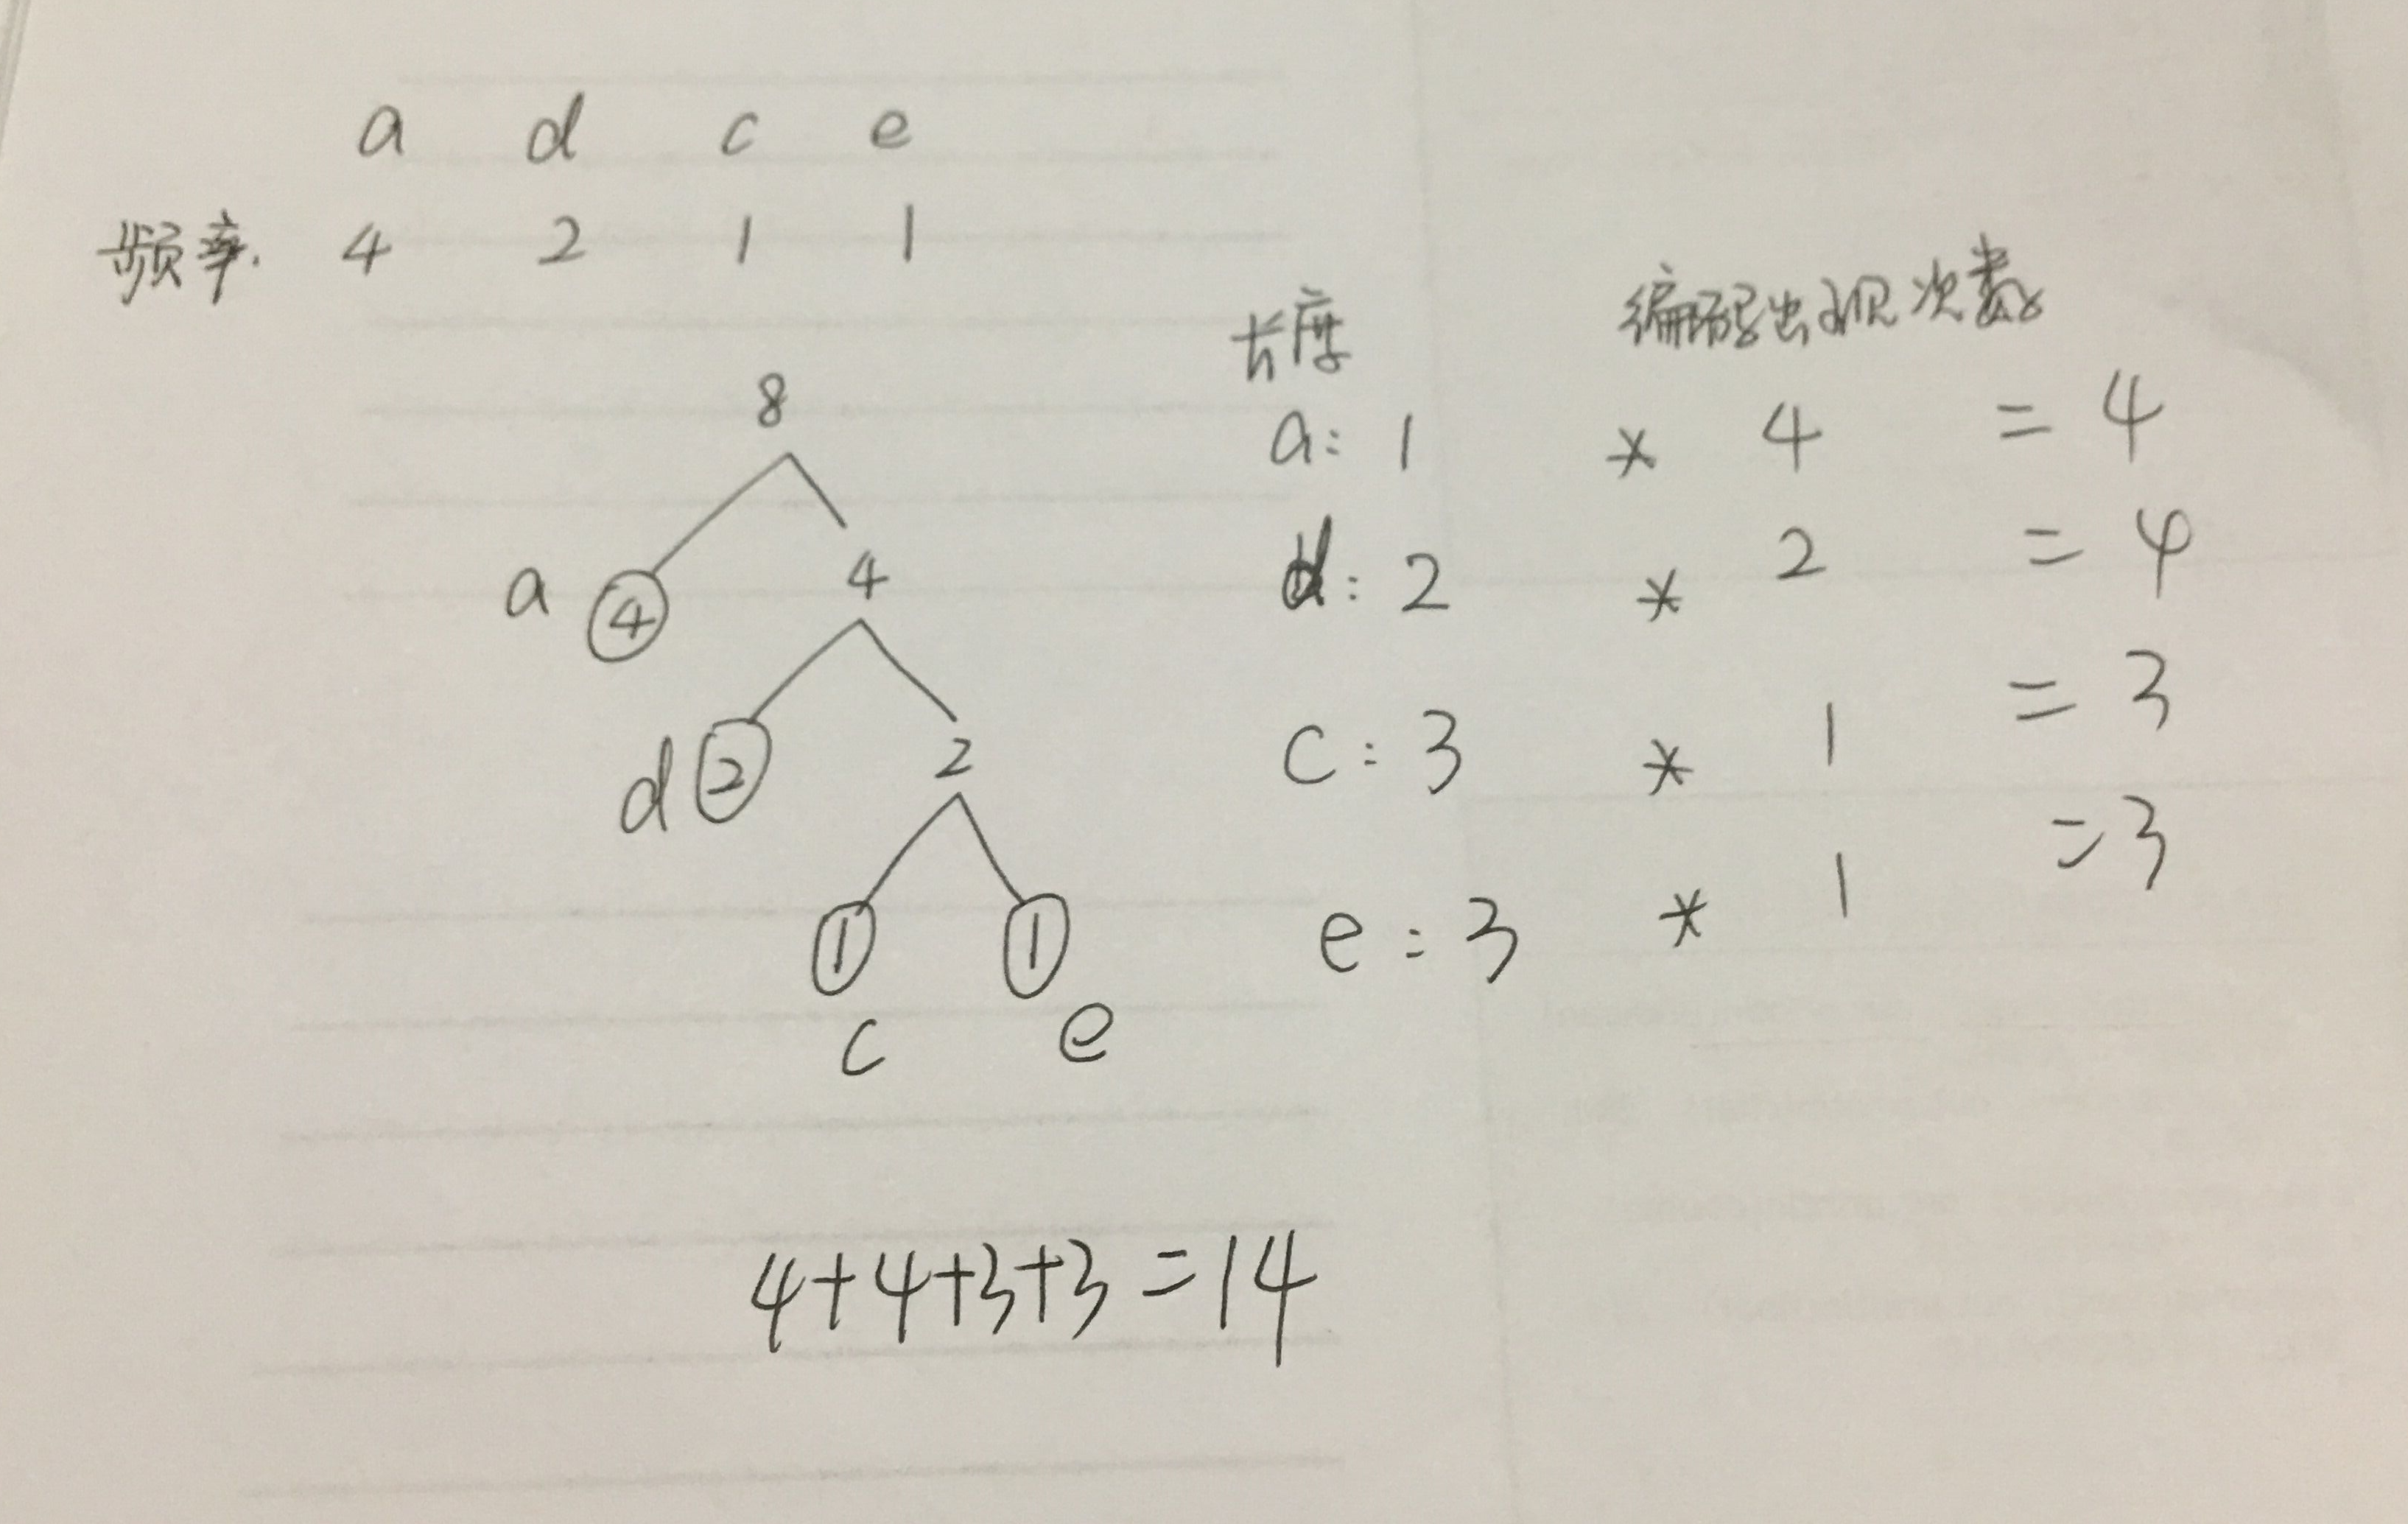 a d c e
频率. 4 2 1 1
8
a 4 4
d 2 2
1 1
c e
长度 编码出现次数
a: 1 * 4 = 4
d: 2 * 2 = 4
c: 3 * 1 = 3
e: 3 * 1 = 3
4+4+3+3=14